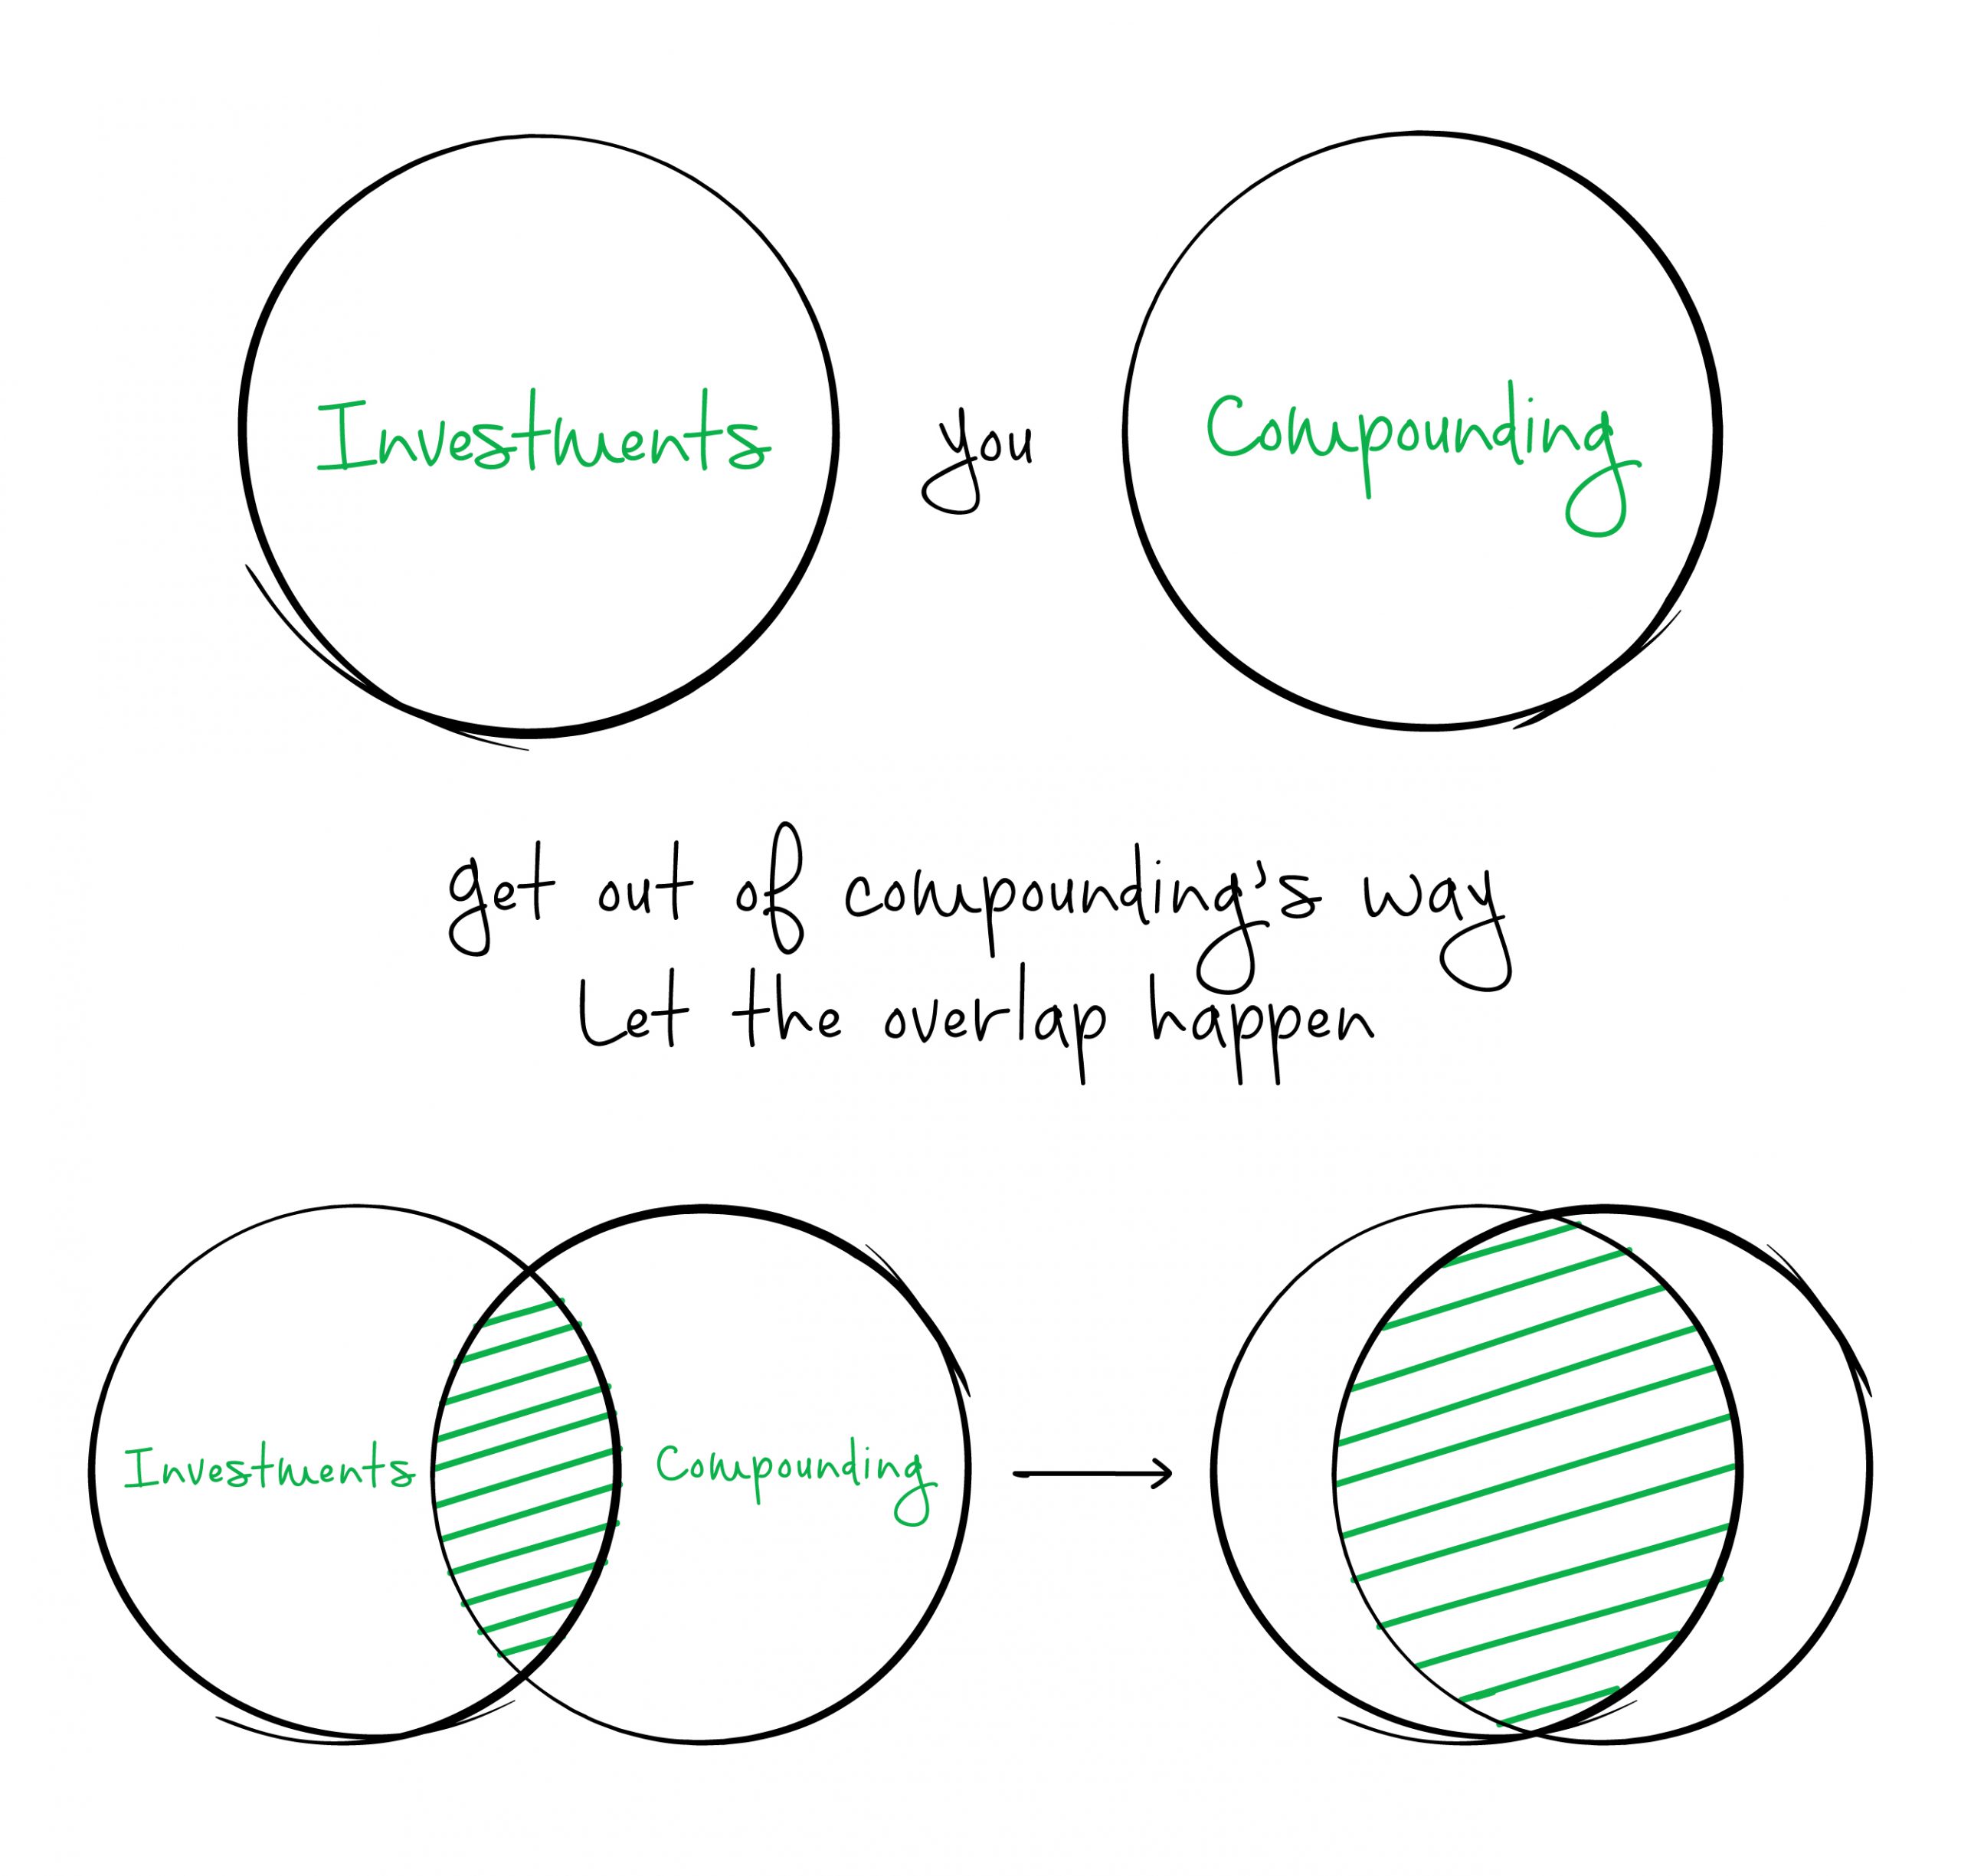 Investments you Compounding
get out of compounding's way
Let the overlap happen
Investments Compounding